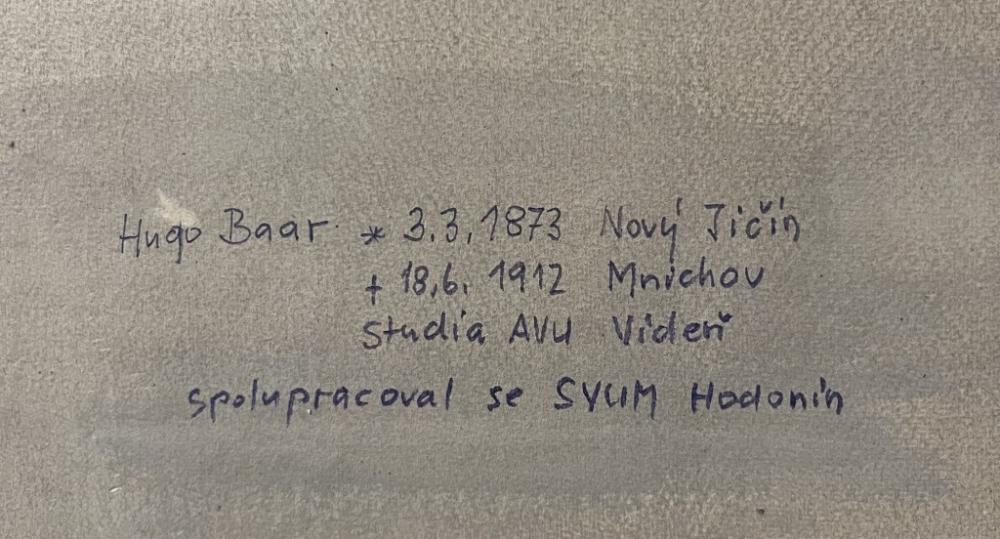 Hugo Baar * 3.3.1873 Nový Jičín
+ 18.6. 1912 Mnichov
Studia AVU Videň
spolupracoval se SVUM Hodonín